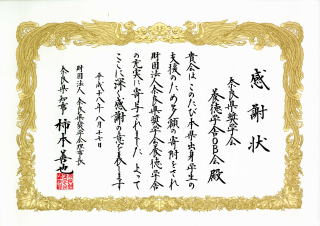 感謝状
奈良県奨学会
養徳学舎OB会 殿
貴会はこのたび本県出身学生の
支援のため多額の寄附をされ
財団法人奈良県奨学会養徳学舎
の充実に寄与されました よって
ここに深く感謝の意を表します
平成十八年八月二十七日
財団法人 奈良県奨学会理事長
奈良県知事 柿本善也